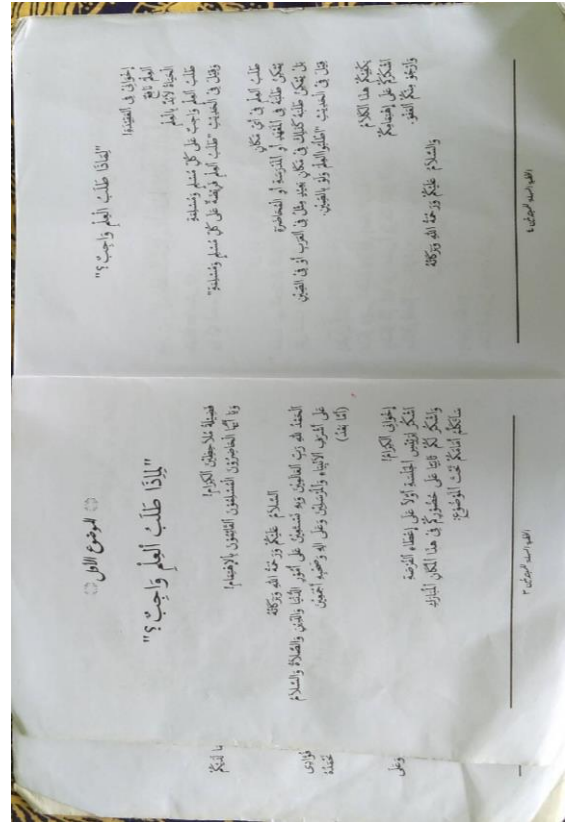 الموضوع الاول
"لِمَاذَا طَلَبُ الْعِلْمِ وَاجِبٌ ؟"
فَضِيْلَةُ مُلَاحِظِيْنَ الْكِرَامِ!
وَيَا أَيُّهَا الْحَاضِرُوْنَ الْمُسْلِمُوْنَ الْقَائِمُوْنَ بِالْإِهْتِمَامِ!
السَّلَامُ عَلَيْكُمْ وَرَحْمَةُ اللهِ وَبَرَكَاتُهُ
الْحَمْدُ للهِ رَبِّ الْعَالَمِيْنَ وَبِهِ نَسْتَعِيْنُ عَلَى أُمُوْرِ الدُّنْيَا وَالدِّيْنِ وَالصَّلَاةُ وَالسَّلَامُ
عَلَى أَشْرَفِ الْأَنْبِيَاءِ وَالْمُرْسَلِيْنَ وَعَلَى اٰلِهِ وَصَحْبِهِ أَجْمَعِيْنَ
(أَمَّا بَعْدُ)
إِخْوَانِى الْكِرَامُ!
أَشْكُرُ لِرَئِيْسِ الْجَلْسَةِ أَوَّلًا عَلَى إِعْطَاءِ الْفُرْصَةِ
وَأَشْكُرُ لَكُمْ ثَانِيًا عَلَى حُضُوْرِكُمْ فِى هٰذَا الْمَكَانِ الْمُبَارَكِ
سَأَتَكَلَّمُ أَمَامَكُمْ تَحْتَ الْمَوْضُوْعِ:
٣
"لِمَاذَا طَلَبُ الْعِلْمِ وَاجِبٌ ؟"
إِخْوَانِى فِى الْعَقِيْدَةِ!
الْعِلْمُ نَافِعٌ
الْحَيَاةُ لَابُدَّ بِالْعِلْمِ
طَلَبُ الْعِلْمِ وَاجِبٌ عَلَى كُلِّ مُسْلِمٍ وَمُسْلِمَةٍ
وَقِيْلَ فِى الْحَدِيْثِ "طَلَبُ الْعِلْمِ فَرِيْضَةٌ عَلَى كُلِّ مُسْلِمٍ وَمُسْلِمَةٍ"
طَلَبُ الْعِلْمِ فِى أَيِّ مَكَانٍ
يُمْكِنُ طَلَبُهُ فِى الْمَعْهَدِ أَوِ الْمَدْرَسَةِ أَوِ الْمُحَاضَرَةِ
بَلْ يُمْكِنُ طَلَبُهُ كَذٰلِكَ فِى مَكَانٍ بَعِيْدٍ مِثْلُ فِى الْعَرَبِ أَوْ فِى الصِّيْنِ
قِيْلَ فِى الْحَدِيْثِ "أُطْلُبُوا الْعِلْمَ وَلَوْ بِالصِّيْنِ.
يَكْفِيْكُمْ هٰذَا الْكَلَامُ
أَشْكُرُكُمْ عَلَى إِهْتِمَامِكُمْ
وَأَرْجُو مِنْكُمُ الْعَفْوَ.
وَالسَّلَامُ عَلَيْكُمْ وَرَحْمَةُ اللهِ وَبَرَكَاتُهُ
٤